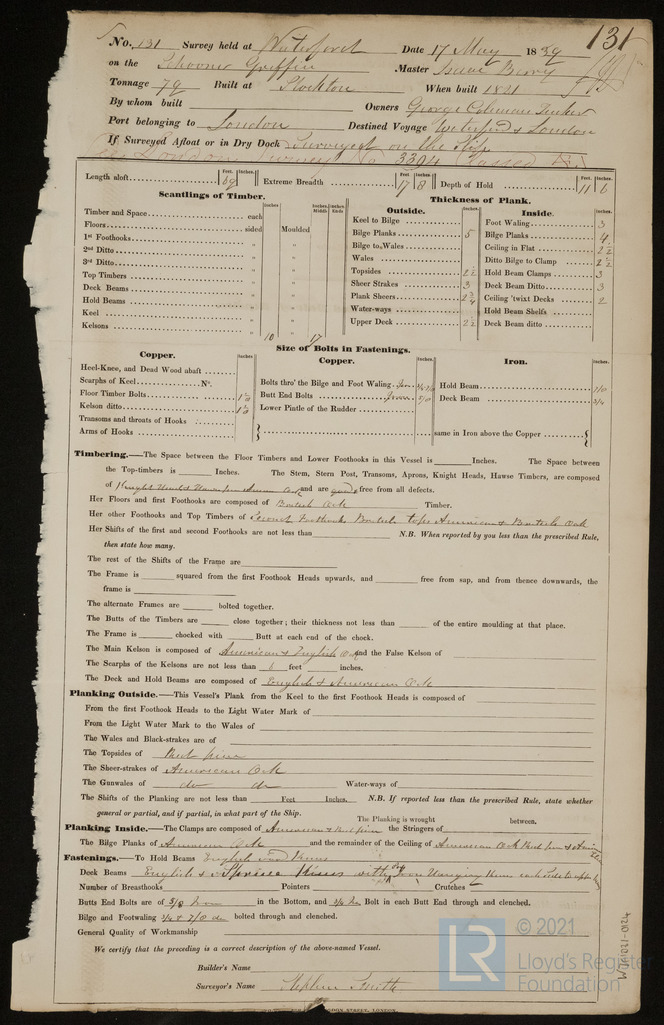 131
No. 131 Survey held at Waterford Date 17 May 1839
on the Schooner Griffin Master Isaac Berry
Tonnage 79 Built at Stockton When built 1821
By whom built Owners George Coleman
Port belonging to London Destined Voyage Waterford & London
If Surveyed Afloat or in Dry Dock Surveyed on the Slip
London Survey No 3304 Classed
Length aloft Feet. 69 Inches. Extreme Breadth Feet. 17 Inches. 8 Depth of Hold Feet. 11 Inches. 6
Scantlings of Timber.
Inches. Inches. Middle Inches. Ends
Timber and Space each
Floors sided Moulded
1st Foothooks " "
2nd Ditto " "
3rd Ditto " "
Top Timbers " "
Deck Beams " "
Hold Beams " "
Keel " "
Kelsons "
10 17
Thickness of Plank.
Outside. Inches.
Keel to Bilge
Bilge Planks 5
Bilge to Wales
Wales
Topsides 2½
Sheer Strakes 3
Plank Sheers 2¾
Water-ways
Upper Deck 2½
Inside. Inches.
Foot Waling 3
Bilge Planks 4
Ceiling in Flat 2½
Ditto Bilge to Clamp 2½
Hold Beam Clamps 3
Deck Beam Ditto 3
Ceiling 'twixt Decks 2
Hold Beam Shelfs
Deck Beam ditto
Size of Bolts in Fastenings.
Copper. Inches
Heel-Knee, and Dead Wood abaft
Scarphs of Keel No.
Floor Timber Bolts
Kelson ditto
Transoms and throats of Hooks
Arms of Hooks
Copper. Inches.
Bolts thro' the Bilge and Foot Waling Iron ¾ 7/8
Butt End Bolts Iron 5/8
Lower Pintle of the Rudder
Iron. Inches.
Hold Beam 7/8
Deck Beam 3/4
same in Iron above the Copper
Timbering.—The Space between the Floor Timbers and Lower Foothooks in this Vessel is Inches. The Space between
the Top-timbers is Inches. The Stem, Stern Post, Transoms, Aprons, Knight Heads, Hawse Timbers, are composed
of Oak and are good & free from all defects.
Her Floors and first Foothooks are composed of British Oak Timber.
Her other Foothooks and Top Timbers of Second Foothooks British tops American & British Oak
Her Shifts of the first and second Foothooks are not less than N.B. When reported by you less than the prescribed Rule,
then state how many.
The rest of the Shifts of the Frame are
The Frame is squared from the first Foothook Heads upwards, and free from sap, and from thence downwards, the
frame is
The alternate Frames are bolted together.
The Butts of the Timbers are close together; their thickness not less than of the entire moulding at that place.
The Frame is chocked with Butt at each end of the chock.
The Main Kelson is composed of American & English Oak and the False Kelson of
The Scarphs of the Kelsons are not less than 6 feet inches.
The Deck and Hold Beams are composed of English & American Oak
Planking Outside.—This Vessel's Plank from the Keel to the first Foothook Heads is composed of
From the first Foothook Heads to the Light Water Mark of
From the Light Water Mark to the Wales of
The Wales and Black-strakes are of
The Topsides of Red pine
The Sheer-strakes of American Oak
The Gunwales of do do Water-ways of
The Shifts of the Planking are not less than Feet Inches. N.B. If reported less than the prescribed Rule, state whether
general or partial, and if partial, in what part of the Ship.
The Planking is wrought between.
Planking Inside.—The Clamps are composed of American & Red pine the Stringers of
The Bilge Planks of American Oak and the remainder of the Ceiling of American Oak Red pine &
Fastenings.—To Hold Beams English Knees
Deck Beams English & Spruce Knees with Iron Hanging Knees
Number of Breasthooks Pointers Crutches
Butts End Bolts are of 5/8 Iron in the Bottom, and 3/4 Bolt in each Butt End through and clenched.
Bilge and Footwaling 3/4 & 7/8 do bolted through and clenched.
General Quality of Workmanship
We certify that the preceding is a correct description of the above-named Vessel.
Builder's Name
Surveyor's Name Stephen Smith
LR
© 2021
Lloyd's Register
Foundation
STREET, LONDON.